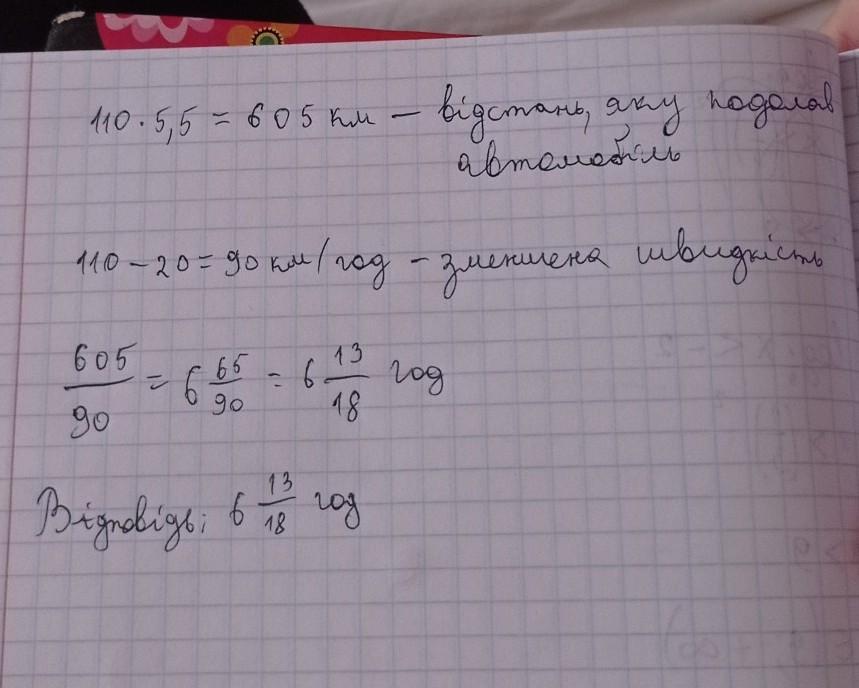 110 · 5,5 = 605 км – відстань, яку подолав
автомобіль
110 – 20 = 90 км/год – зменшена швидкість
605/90 = 6 65/90 = 6 13/18 год
Відповідь: 6 13/18 год